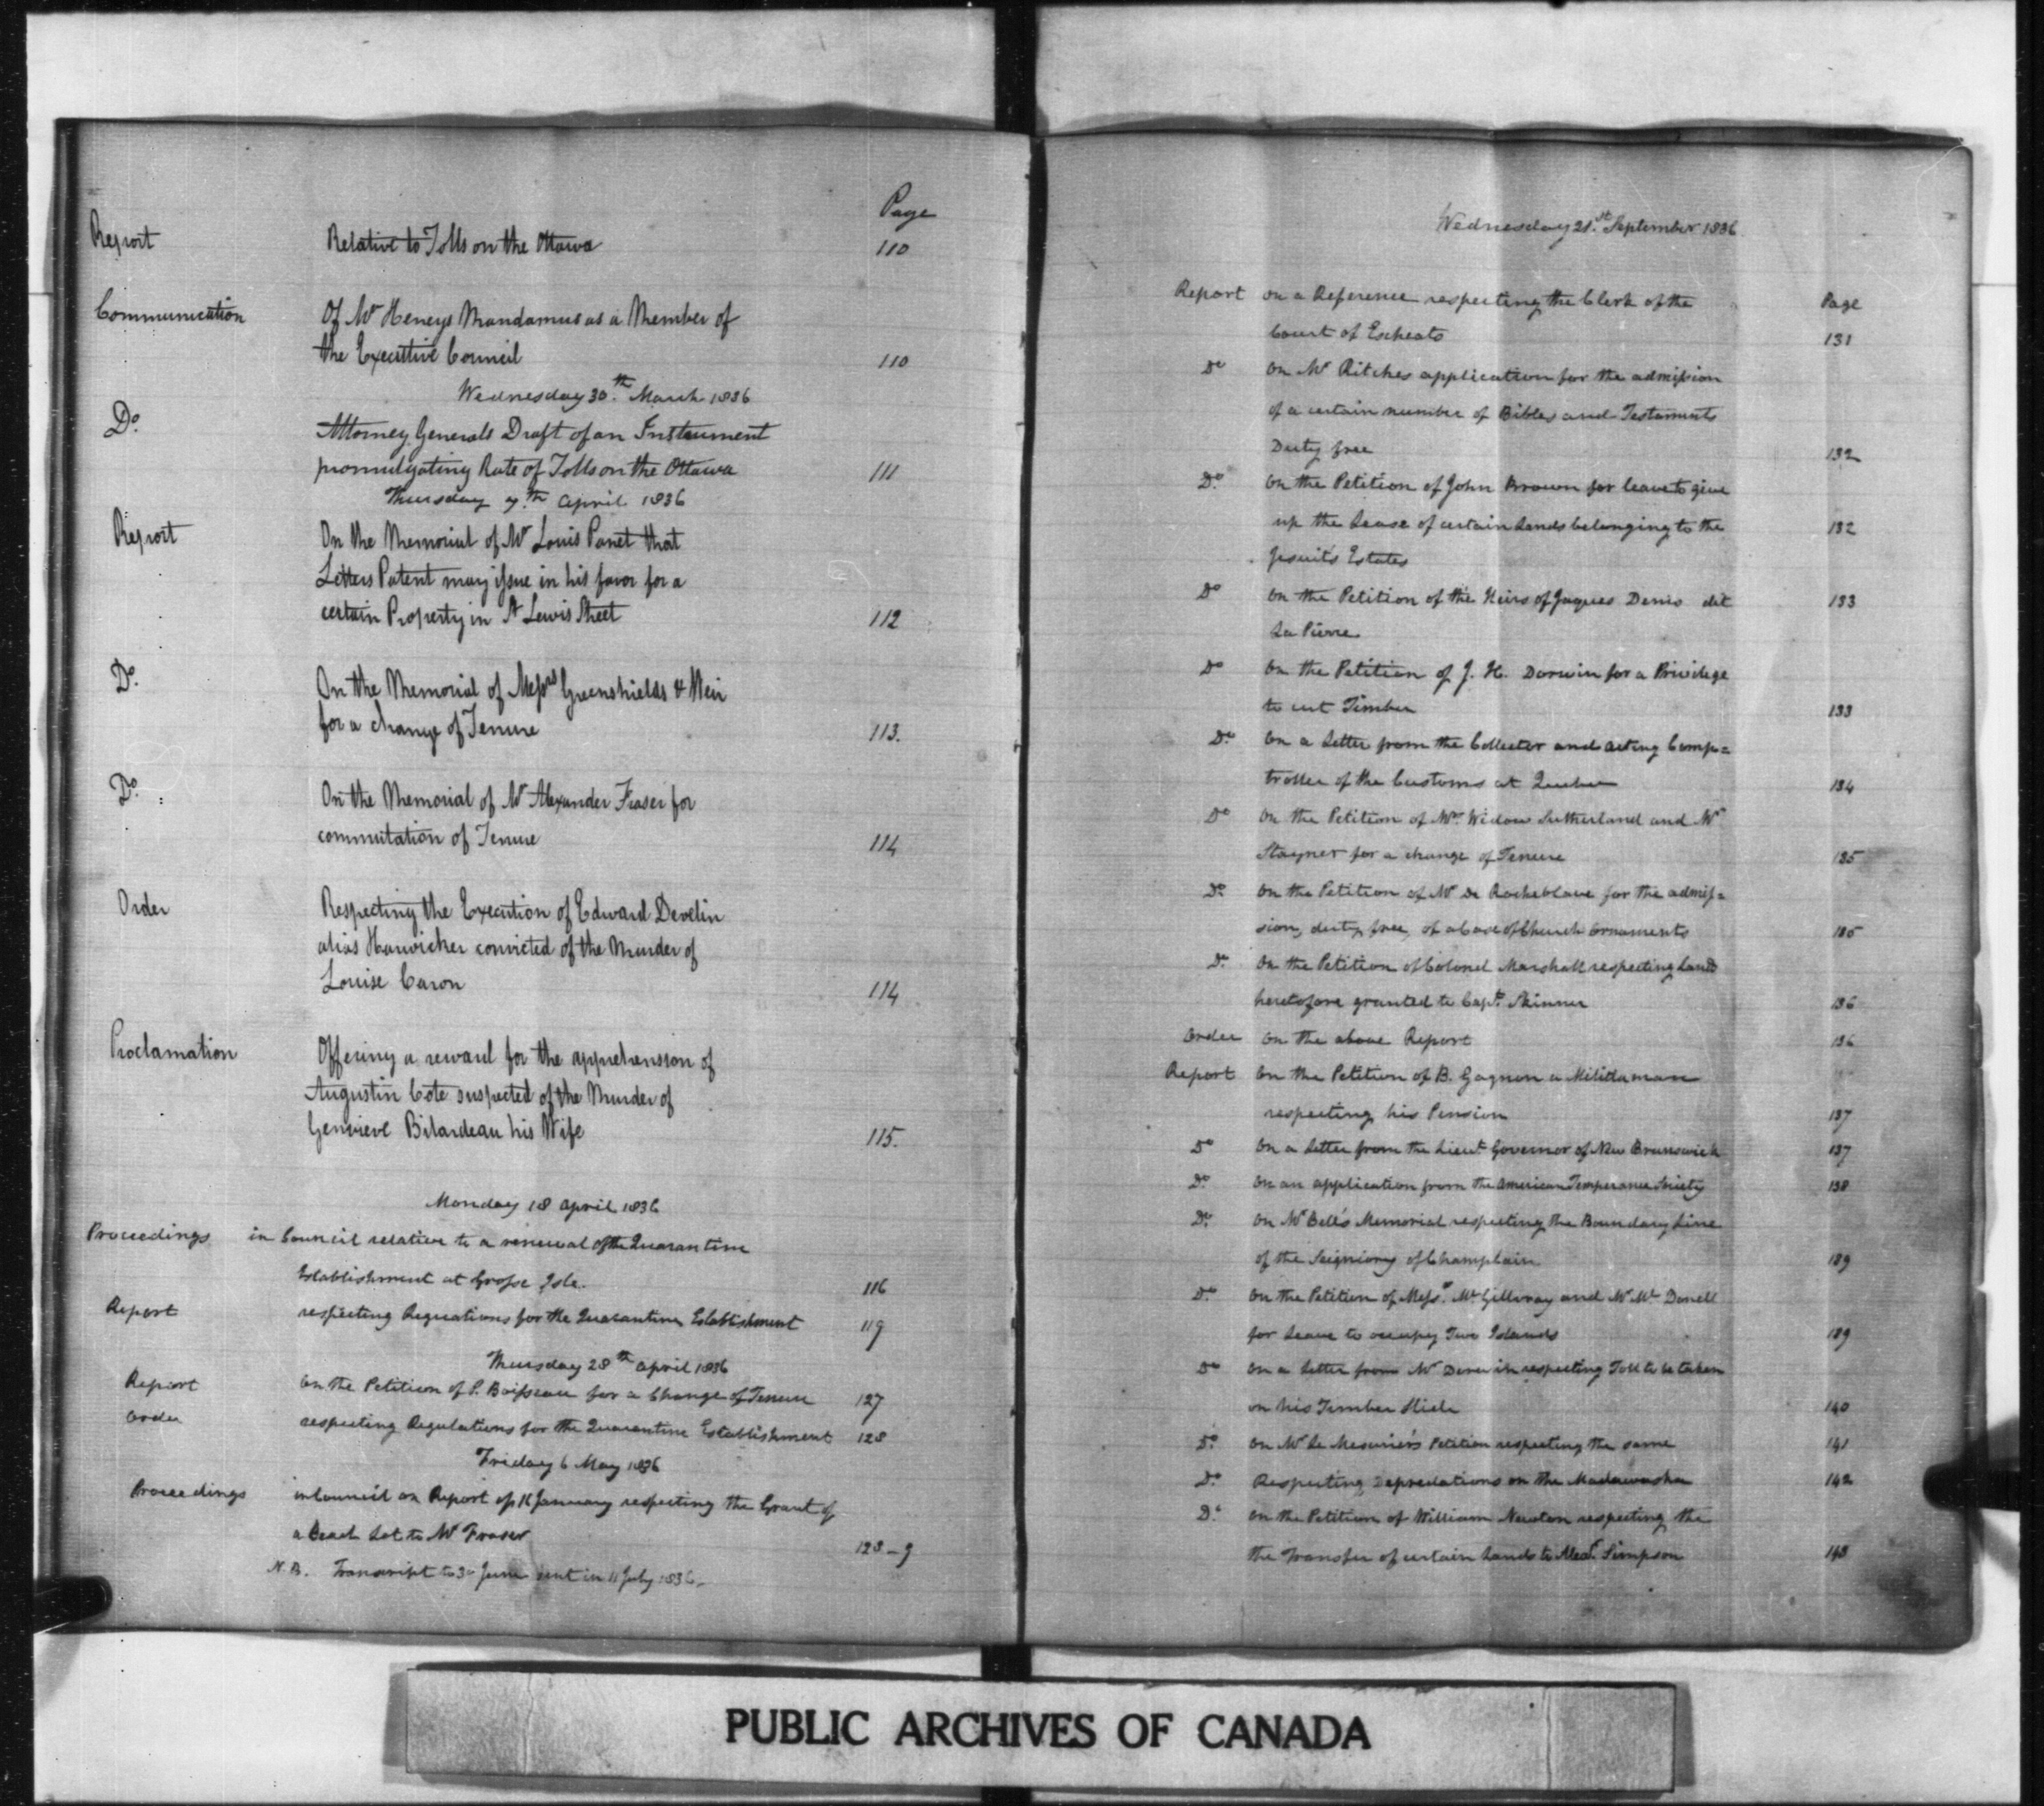 Page
Report Relative to Tolls on the Ottawa 110
Communication Of Mr Heneys Mandamus as a Member of
the Executive Council 110
Wednesday 30th March 1836
Do. Attorney Generals Draft of an Instrument
promulgating Rate of Tolls on the Ottawa 111
Thursday 7th April 1836
Report On the Memorial of Mr Louis Panet that
Letters Patent may issue in his favor for a
certain Property in St Lewis Street 112
Do. On the Memorial of Messrs Greenshields & Weir
for a change of Tenure 113.
Do. On the Memorial of Mr Alexander Fraser for
commutation of Tenure 114
Order Respecting the Execution of Edward Develin
alias Harwicker convicted of the Murder of
Louise Caron 114
Proclamation Offering a reward for the apprehension of
Augustin Cote suspected of the Murder of
Genvieve Bilardeau his Wife 115.
Monday 18 April 1836
Proceedings in Council relative to a renewal of the Quarantine
Establishment at Grosse Isle. 116
Report respecting Reguations for the Quarantine Establishment 119
Thursday 28th April 1836
Report On the Petition of P. Boisseau for a Change of Tenure 127
Order respecting Regulations for the Quarantine Establishment 128
Friday 6 May 1836
Proceedings in Council on Report of 16 January respecting the Grant of
a Beach Lot to Mr Fraser 128-9
N.B. Transcript to 30 June sent in 11 July 1836.
Wednesday 21st September 1836
Report on a Reference respecting the Clerk of the Page
Court of Escheats 131
Do on Mr Ritchies application for the admission
of a certain number of Bibles and Testaments
Duty free 132
Do. On the Petition of John Brown for leave to give
up the Lease of certain Lands belonging to the 132
Jesuit's Estates
Do On the Petition of the Heirs of Jaques Denis dit 133
La Pierre
Do On the Petition of J. H. Dorwin for a Privilege
to cut Timber 133
Do. On a Letter from the Collector and acting Comp=
troller of the Customs at Quebec 134
Do On the Petition of Mrs Widow Sutherland and Mr
Stayner for a change of Tenure 135
Do. On the Petition of Mr De Rocheblave for the admis=
sion, duty free, of a Case of Church Ornaments 135
Do. On the Petition of Colonel Marshall respecting Land
heretofore granted to Capt. Skinner 136
Order On the above Report 136
Report On the Petition of B. Gagnon a Militiaman
respecting his Pension 137
Do On a Letter from the Lieut Governor of New Brunswick 137
Do. On an application from the American Temperance Society 138
Do. On Mr Bell's Memorial respecting the Boundary Line
of the Seigniory of Champlain 139
Do. On the Petition of Messrs. Mc Gillivray and Mr Mc Donell
for Leave to occupy Two Islands 139
Do On a Letter from Mr respecting Toll to be taken
on his Timber Slide 140
Do. On Mr Le Mesurier's Petition respecting the same 141
Do. Respecting Depredations on the Madawaska 142
Do. On the Petition of William Newton respecting the
the Transfer of certain Lands to Alexr. Simpson 143
PUBLIC ARCHIVES OF CANADA